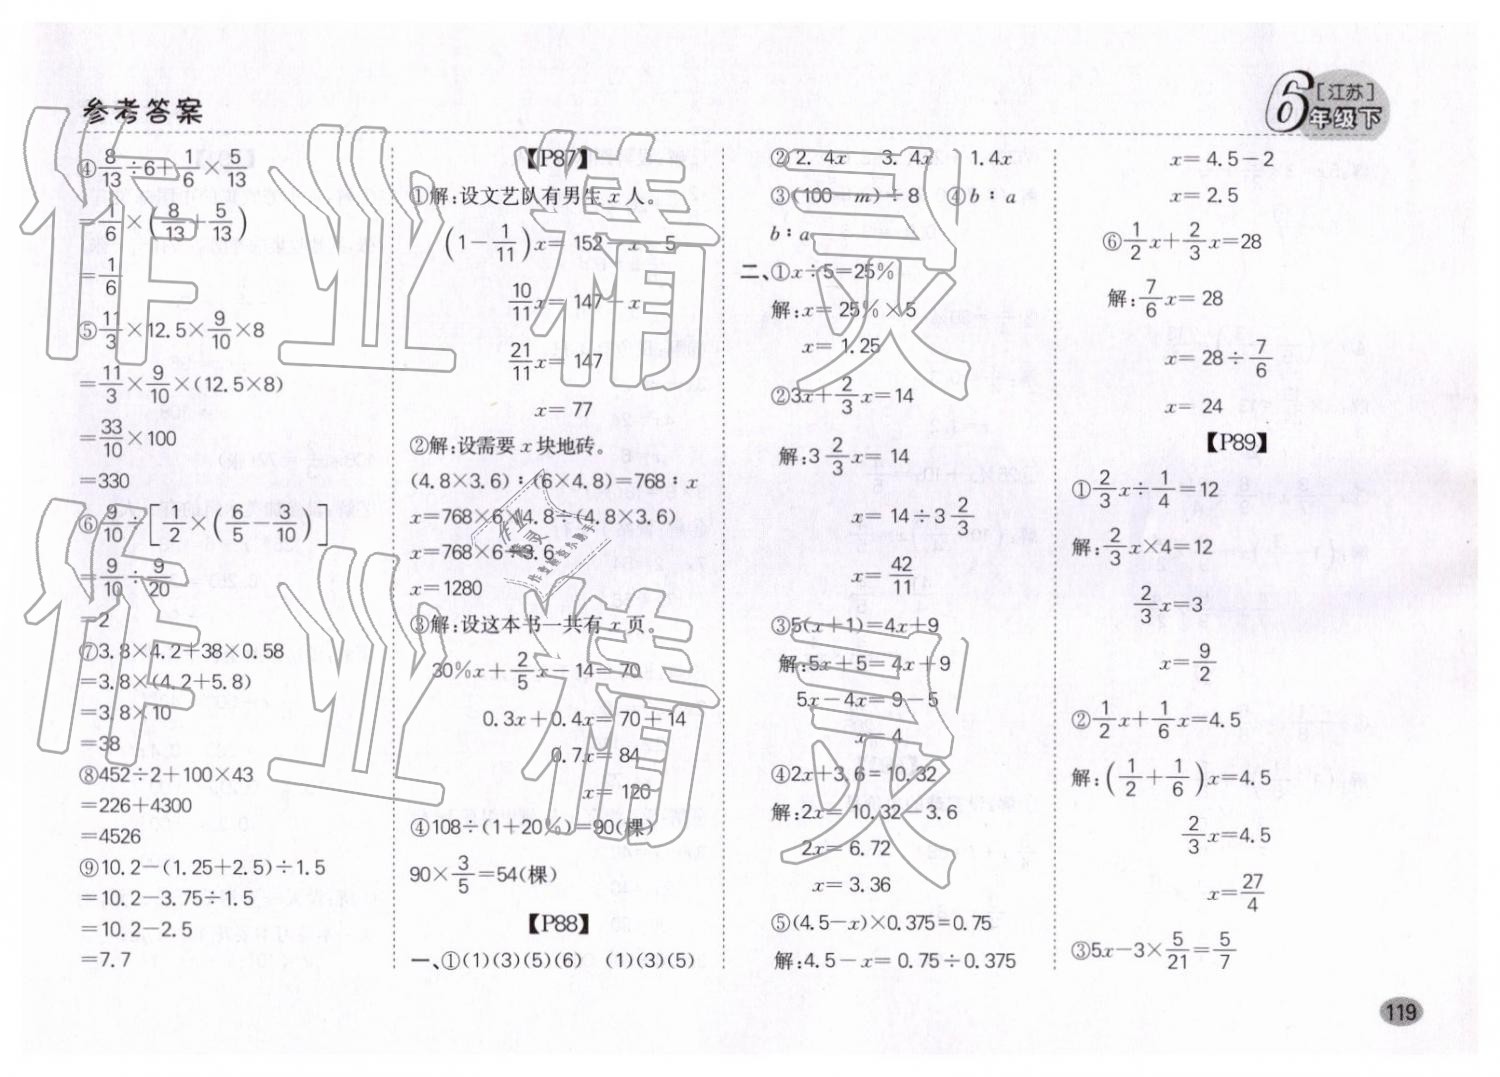 参考答案
6 [江苏] 年级下
④8/13÷6+1/6×5/13
=1/6×(8/13+5/13)
=1/6
⑤11/3×12.5×9/10×8
=11/3×9/10×(12.5×8)
=33/10×100
=330
⑥9/10÷[1/2×(6/5-3/10)]
=9/10÷9/20
=2
⑦3.8×4.2+38×0.58
=3.8×(4.2+5.8)
=3.8×10
=38
⑧452÷2+100×43
=226+4300
=4526
⑨10.2-(1.25+2.5)÷1.5
=10.2-3.75÷1.5
=10.2-2.5
=7.7
【P87】
①解:设文艺队有男生x人。
(1-1/11)x=152-x-5
10/11x=147-x
21/11x=147
x=77
②解:设需要x块地砖。
(4.8×3.6)∶(6×4.8)=768∶x
x=768×6×4.8÷(4.8×3.6)
x=768×6÷3.6
x=1280
③解:设这本书一共有x页。
30%x+2/5x-14=70
0.3x+0.4x=70+14
0.7x=84
x=120
④108÷(1+20%)=90(棵)
90×3/5=54(棵)
【P88】
一、①(1)(3)(5)(6) (1)(3)(5)
②2.4x 3.4x 1.4x
③(100-m)÷8 ④b∶a
b∶a
二、①x÷5=25%
解:x=25%×5
x=1.25
②3x+2/3x=14
解:3 2/3x=14
x=14÷3 2/3
x=42/11
③5(x+1)=4x+9
解:5x+5=4x+9
5x-4x=9-5
x=4
④2x+3.6=10.32
解:2x=10.32-3.6
2x=6.72
x=3.36
⑤(4.5-x)×0.375=0.75
解:4.5-x=0.75÷0.375
x=4.5-2
x=2.5
⑥1/2x+2/3x=28
解:7/6x=28
x=28÷7/6
x=24
【P89】
①2/3x÷1/4=12
解:2/3x×4=12
2/3x=3
x=9/2
②1/2x+1/6x=4.5
解:(1/2+1/6)x=4.5
2/3x=4.5
x=27/4
③5x-3×5/21=5/7
119
作业精灵
作业精灵